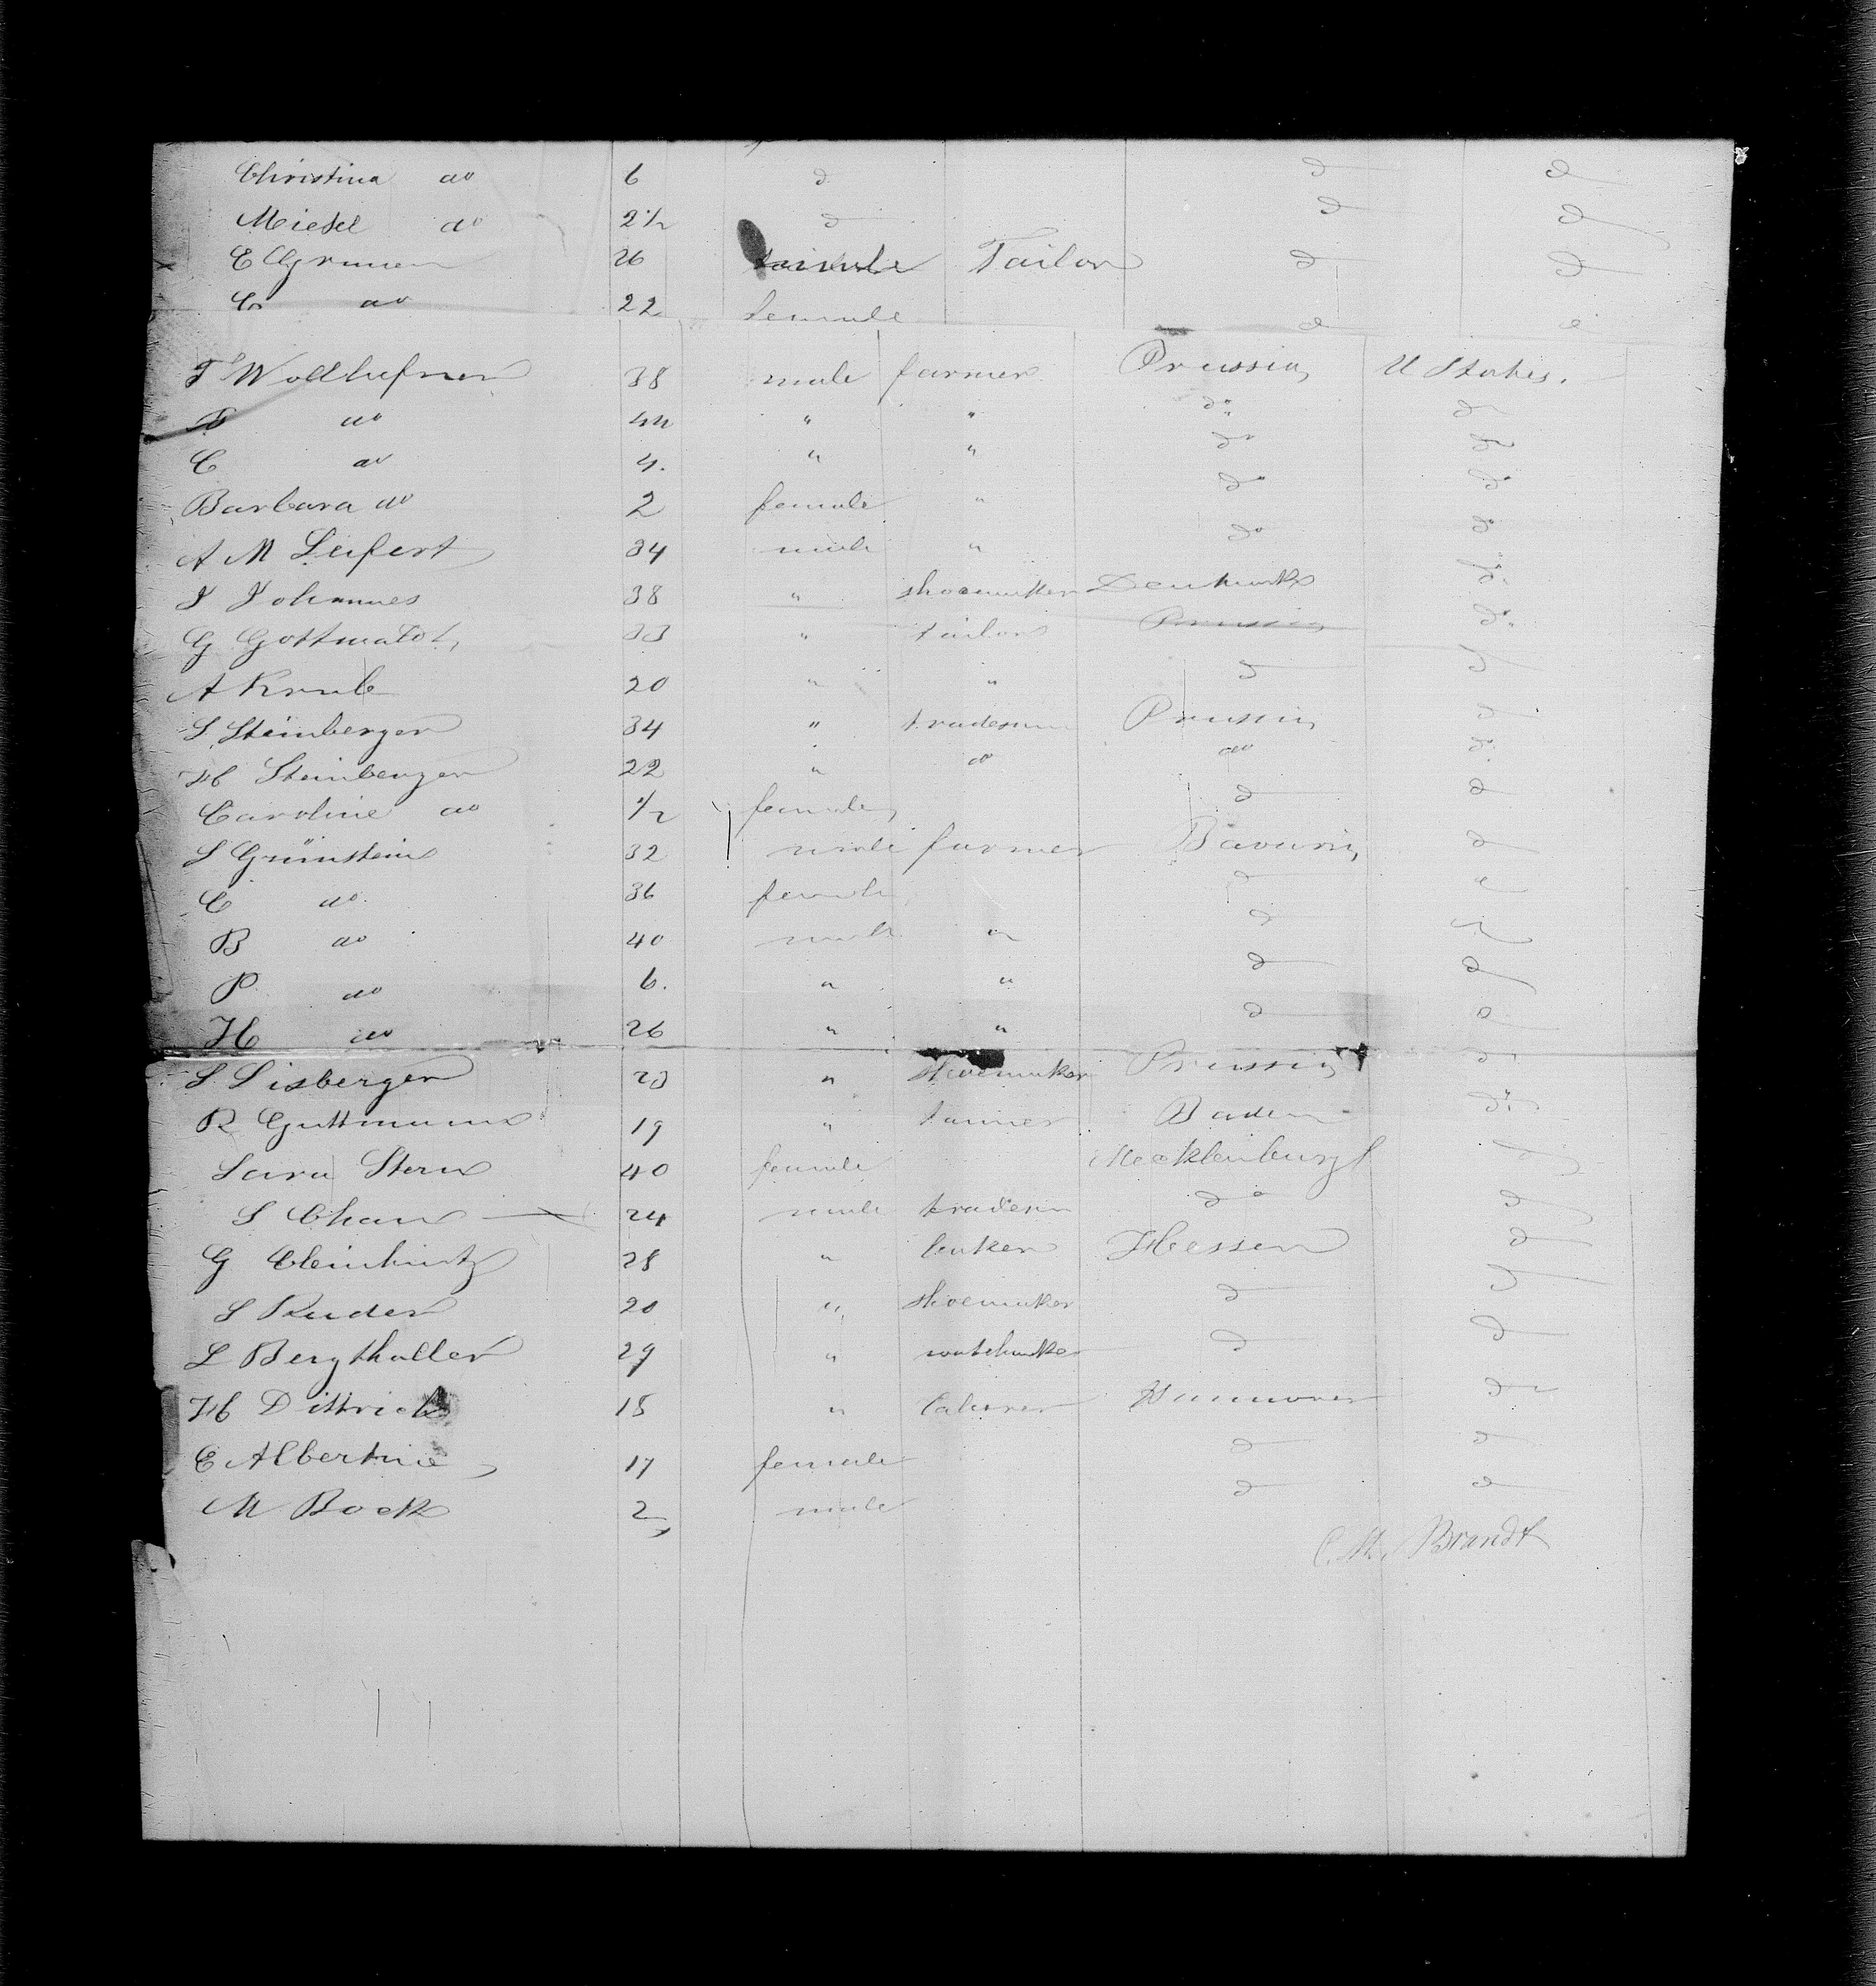 Christina do 6 d d d
Miesel do 2½ d d d
E Grunen 26 Tailor d d
C do 22 female d d
T Wollhefner 38 male farmer Prussia U States.
do 44 " " do do
C do 4. " " do do
Barbara do 2 female " do do
A M Leifert 34 male " do do
J Johannes 38 " shoemaker Denmark do
G Gottwaldt 33 " tailor Prussia do
A Krul 20 " " d d
S. Steinberger 34 " tradesm Prussia d
H Steinberger 22 " do do d
Caroline do ½ female d d
S Grünstein 32 male farmer Bavaria d
C do 36 female d d
B do 40 male " d d
P do 6. " " d d
H do 26 " " d d
S Lisberger 23 " shoemaker Prussia do
R Guttmann 19 " tanner Baden do
Sara Stern 40 female Mecklenburg d
S Chan 24 male tradesm do d
G Cleinhintz 28 " baker Hessen d
S Ruder 20 " shoemaker d d
L Bergthaller 29 " watchmake d d
H Dittrich 18 " laborer Hannover d
E Albertine 17 female d d
M Bock 2 male d d
C. Brandt